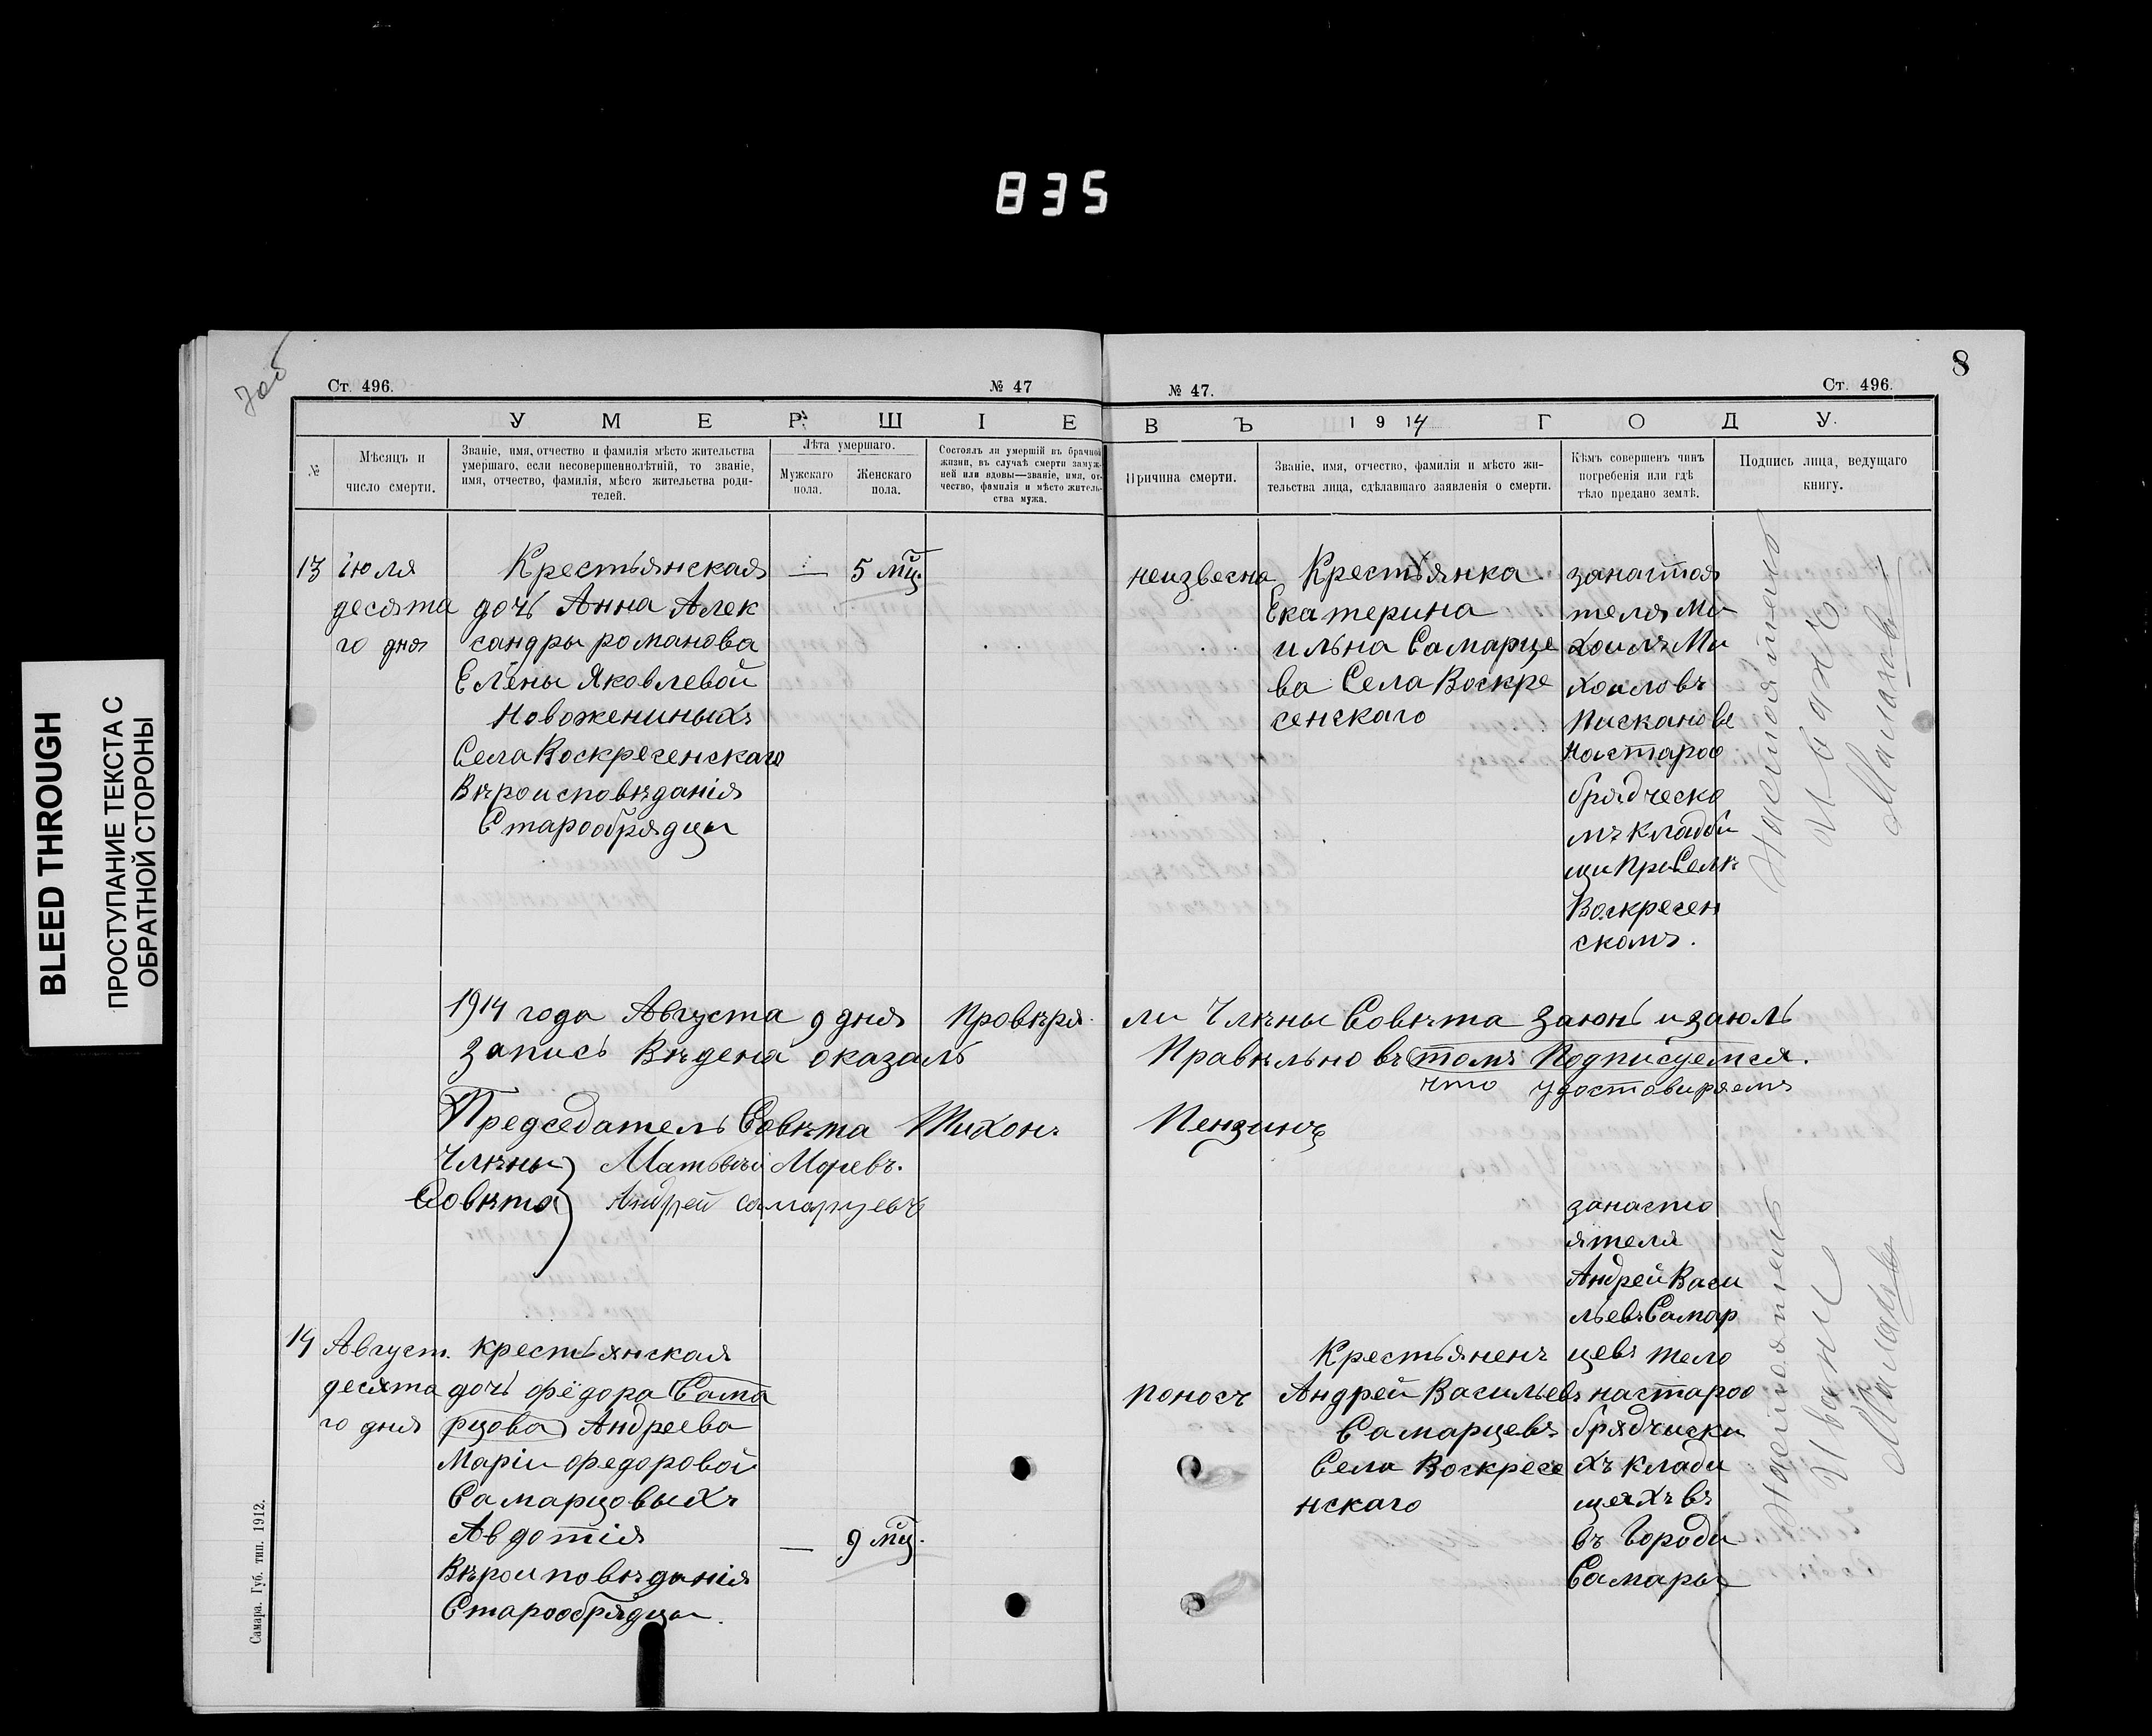 835
BLEED THROUGH
ПРОСТУПАНИЕ ТЕКСТА С
ОБРАТНОЙ СТОРОНЫ
Ст. 496.
№ 47
№ 47.
Ст. 496.
8
УМЕРШІЕ
ВЪ 1914 ГОДУ.
№
Мѣсяцъ и
число смерти.
Званіе, имя, отчество и фамилія мѣсто жительства
умершаго, если несовершеннолѣтній, то званіе,
имя, отчество, фамилія, мѣсто жительства роди-
телей.
Лѣта умершаго.
Мужскаго
пола.
Женскаго
пола.
Состоялъ ли умершій въ брачной
жизни, въ случаѣ смерти замуж-
ней или вдовы—званіе, имя, от-
чество, фамилія и мѣсто житель-
ства мужа.
Причина смерти.
Званіе, имя, отчество, фамилія и мѣсто жи-
тельства лица, сдѣлавшаго заявленія о смерти.
Кѣмъ совершенъ чинъ
погребенія или гдѣ
тѣло предано землѣ.
Подпись лица, ведущаго
книгу.
13
іюля
десята
го дня
Крестьянская
дочь Анна Алек
сандры романова
Елены Яковлевой
Новожениныхъ
Села Воскресенскаго
Вѣроисповѣданія
Старообрядцы
—
5 мц.
неизвесно
Крестьянка
Екатерина
ильна Самарце
ва Села Воскре
сенскаго
занастоя
теля Ми
хоилъ Ми
хоиловъ
Пискановъ
Настароо
брядческо
мъ кладби
щи При Селѣ
Воскресен
скомъ.
Настоятель
Иванъ
Малаховъ
1914 года Августа 9 дня Провѣря
ли Члѣны Совѣта заюнь и заюль
запись Вѣдена оказалъ
Правѣльно въ томъ Подписуемся.
что удостовиряемъ
Председатель Совѣта Тихонъ
Пензинъ
Члѣны
Совѣта
Матьвѣй Моревъ.
Андрей самарцевъ
14
Август.
десята
го дня
крестьянская
дочь фёдора Сама
рцова Андреева
Маріи федоровой
Самарцовыхъ
Авдотія
Вѣроиповѣданія
Старообрядцы.
—
9 мц.
поносъ
Крестьяненъ
Андрей Васильевъ
Самарцевъ
Села Воскресе
нскаго
занасто
ятеля
Андрей Васи
льевъ Самар
цевъ тело
настароо
брядчиски
хъ клади
щяхъ въ
въ Городи
Самары
Настоятель
Иванъ
Малаховъ
Самара. Губ. тип. 1912.